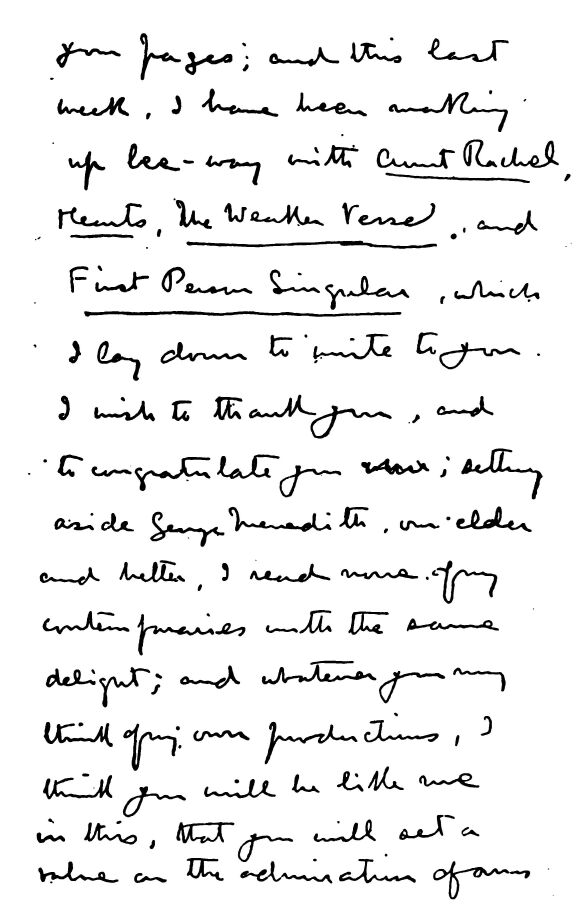 your pages; and this last
week, I have been making
up lee-way with Aunt Rachel,
Hearts, The Weather Verse, and
First Person Singular, which
I lay down to write to you.
I wish to thank you, and
to congratulate you ; setting
aside George Meredith, our elder
and better, I read none of my
contemporaries with the same
delight; and whatever you may
think of my own productions, I
think you will be like me
in this, that you will set a
value on the admiration of one